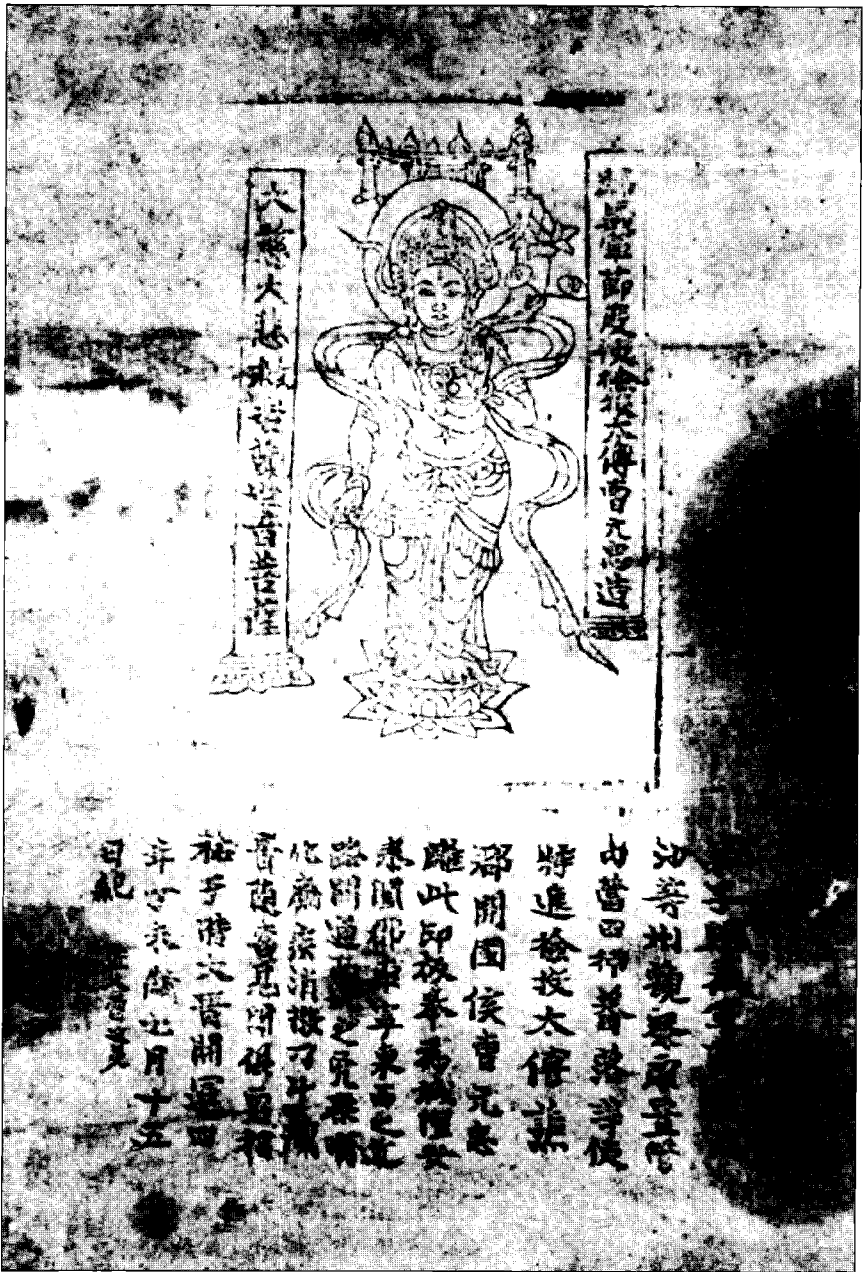 歸義軍節度使檢校太傅曹元忠造
大慈大悲救苦觀世音菩薩
子歸義軍
沙等州觀察處置管
內營田押蕃落等使
特進檢校太傅譙
郡開國侯曹元忠
雕此印板奉為城隍安
泰闔郡康寧東西之道
路開通南北之凶渠順
化癘疾消散刁斗藏
音隨喜見聞俱霑福
祐于時大晉開運四
年丁未歲七月十五
日紀 匠人雷延美